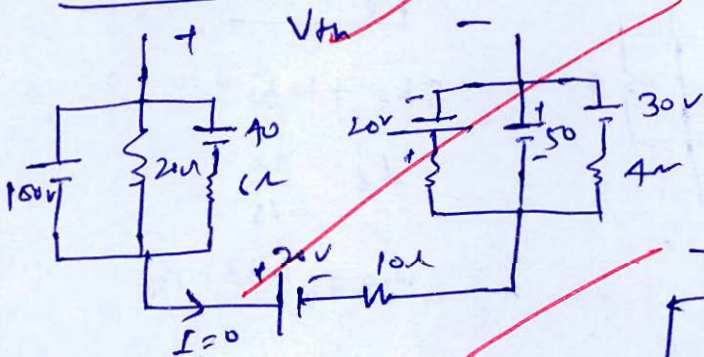 + Vth -
100V 20Ω 40 6Ω
20V - + + 50 - 30V 4Ω
+ 20V - 10Ω
I=0